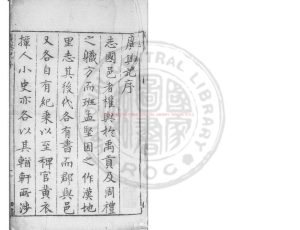 廣輿記序
志國邑者權輿於禹貢及周禮
之職方而班孟堅因之作漢地
里志其後代各有書而郡與邑
又各自有紀乘以至稗官黃衣
撢人小史亦各以其輶軒所涉